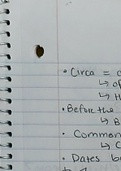 • Circa =
↳ o
↳ H
• Before the
↳ B
• Common
↳ C
• Dates b